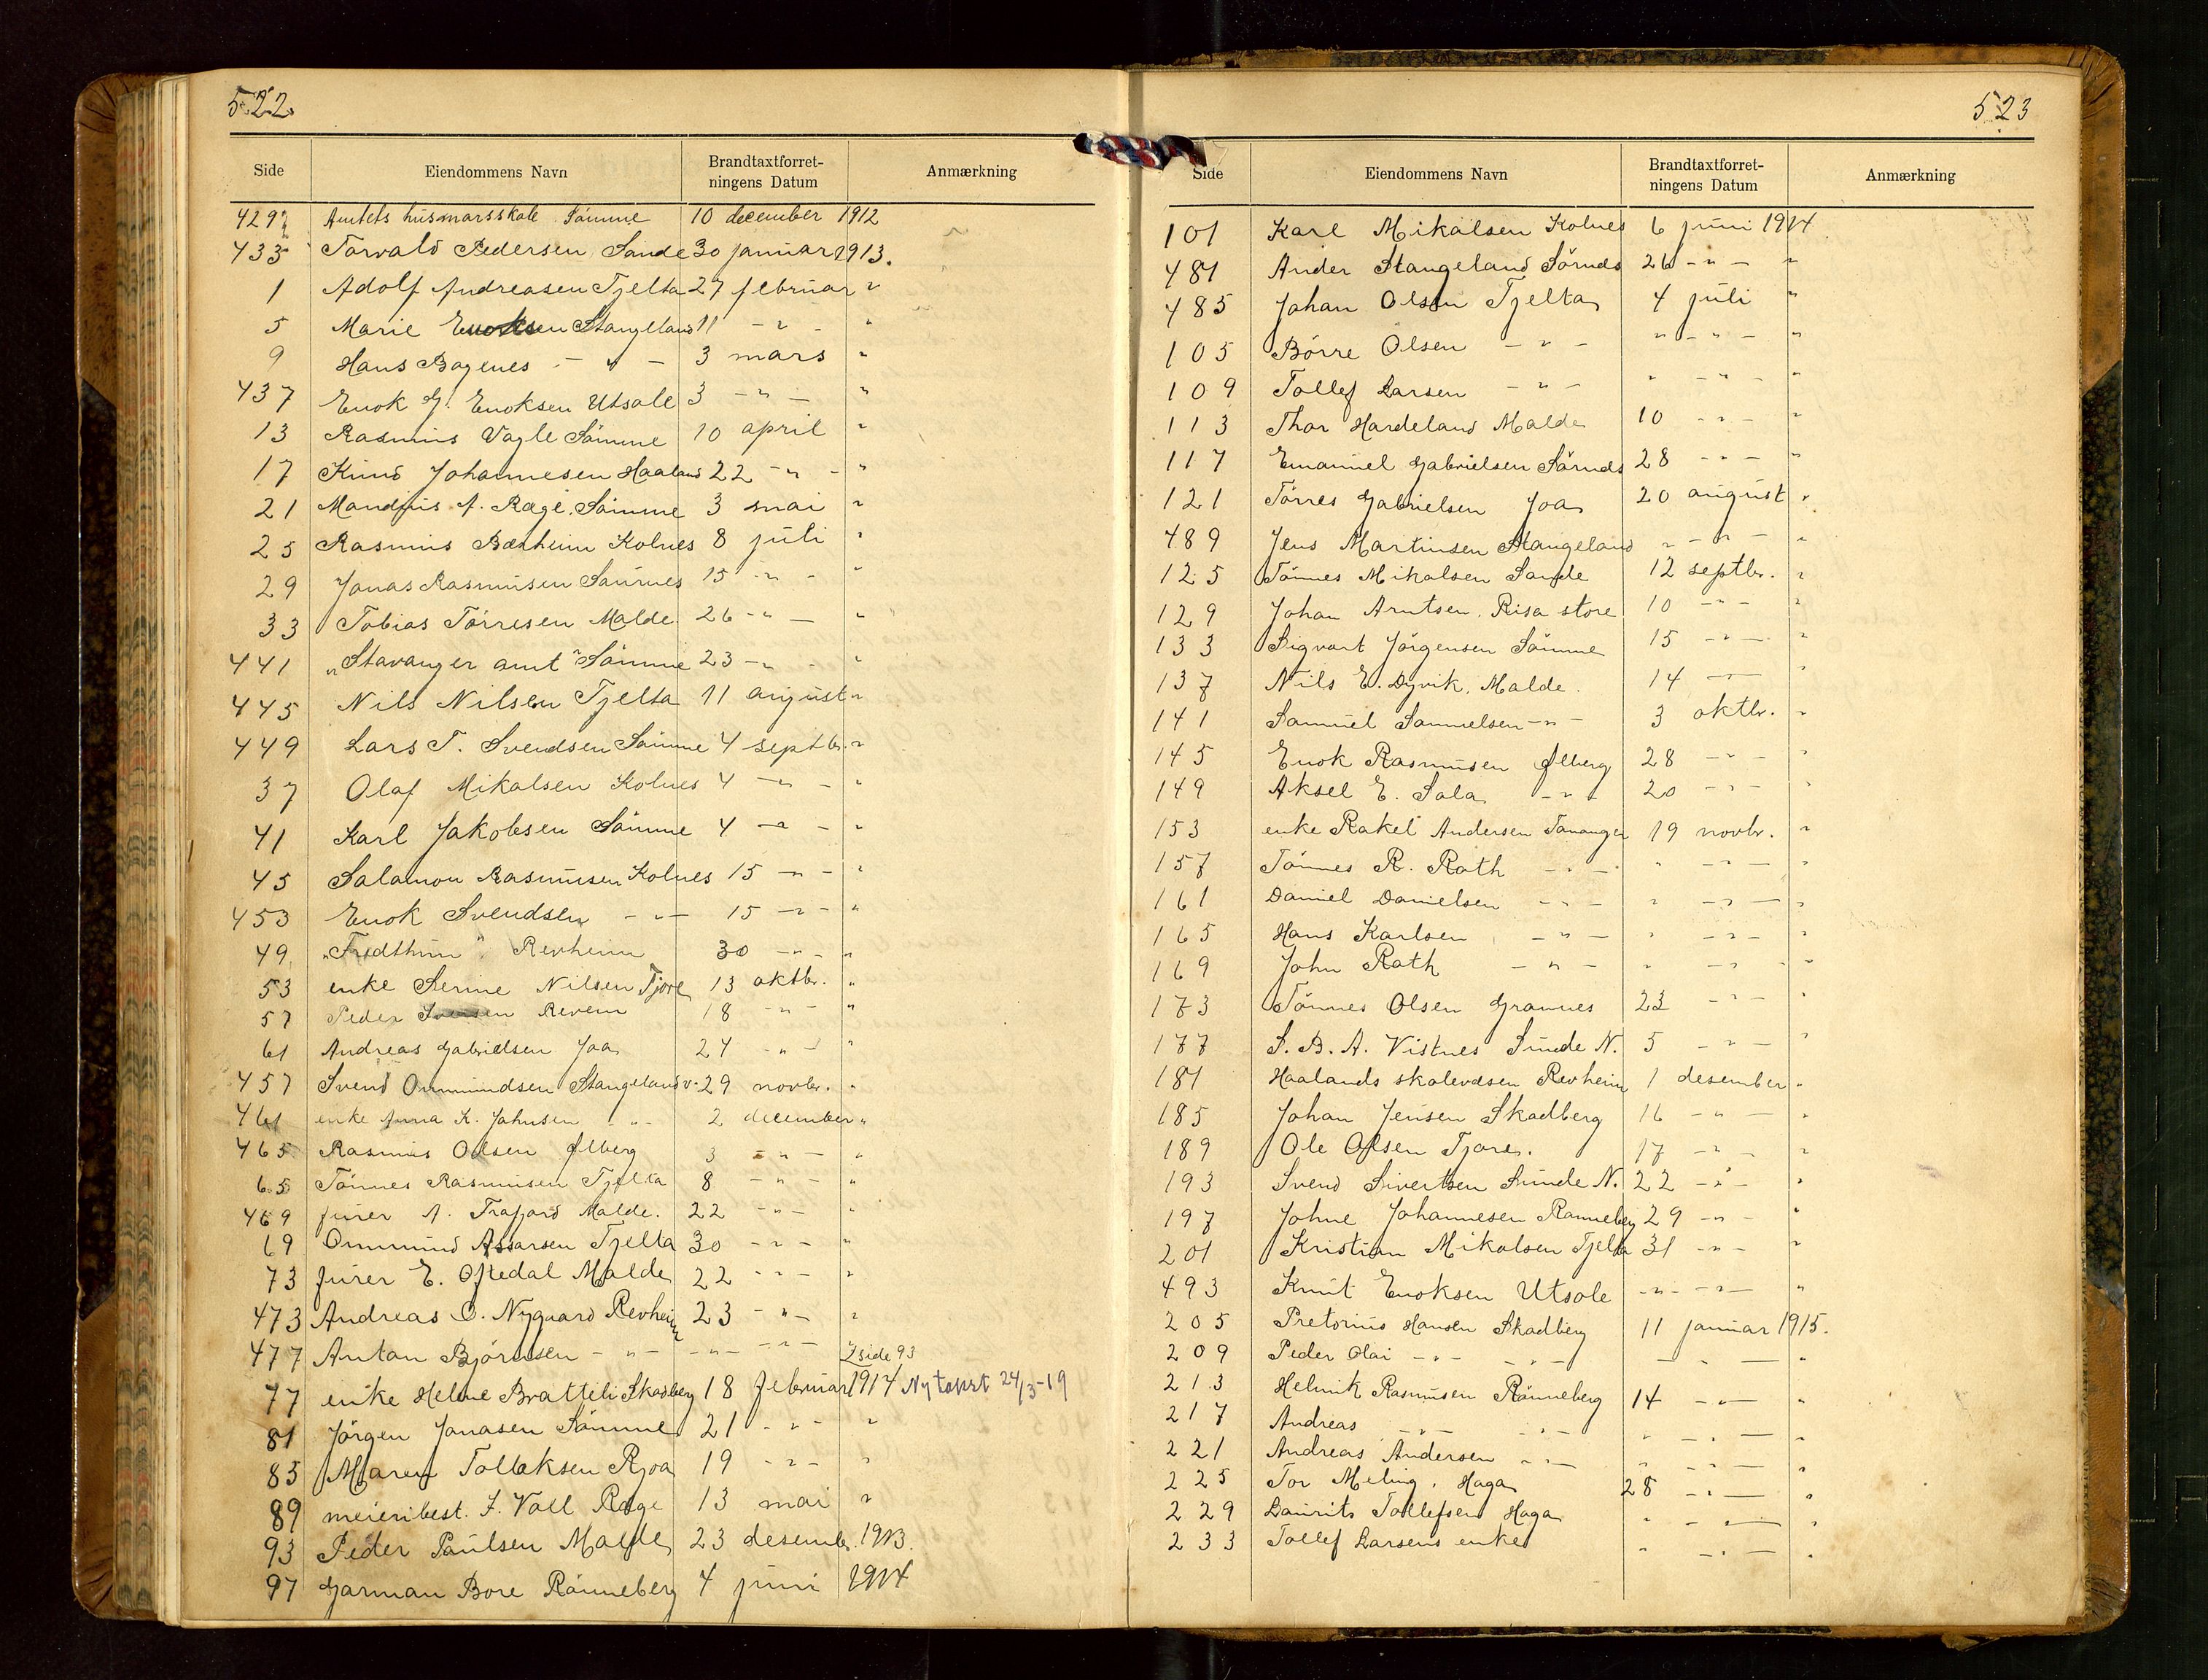 522
Side Eiendommens Navn Brandtaxtforret-ningens Datum Anmærkning
429 Amtets husmorsskole Sömme 10 december 1912
433 Torvald Pedersen Sande 30 januar 1913.
1 Adolf Andreasen Tjelta 27 februar "
5 Marie Enoksen Stangeland 11 - " - "
9 Hans Bogenes - " - 3 mars "
437 Enok G. Enoksen Utsole 3 - " - "
13 Rasmus Vagle Sömme 10 april "
17 Knud Johannesen Haaland 22 - " - "
21 Mandius A. Ræge. Sömme 3 mai "
25 Rasmus Bærheim Kolnes 8 juli "
29 Jonas Rasmusen Sörnes 15 - " - "
33 Tobias Törresen Malde 26 - " - "
441 "Stavanger amt" Sömme 23 - " - "
445 Nils Nilsen Tjelta 11 august "
449 Lars T. Svendsen Sömme 4 septbr. "
37 Olaf Mikalsen Kolnes 4 - " - "
41 Karl Jakobsen Sömme 4 - " - "
45 Salamon Rasmusen Kolnes 15 - " - "
453 Enok Svendsen - " - 15 - " - "
49 "Fredthun" Revheim 30 - " - "
53 enke Serine Nilsen Tjore 13 oktbr. "
57 Peder Revem 18 - " - "
61 Andreas Gabrielsen Joa 24 - " - "
457 Svend Ommundsen Stangeland v. 29 novbr. "
461 enke Anna K. Johnsen " - 2 december "
465 Rasmus Olsen Ølberg 3 - " - "
65 Tönnes Rasmusen Tjelta 8 - " - "
469 furer A. Trafjord Malde. 22 - " - "
69 Ommund Assarsen Tjelta 30 - " - "
73 furer E. Oftedal Malde 22 - " - "
473 Andreas O. Nygaard Revheim 23 - " - "
477 Antan Björnsen - " - - " - - " - Zside 93
77 enke Helene Bratteli Skadberg 18 februar 1914 Ny takst 24/3-19
81 Jörgen Jonasen Sömme 21 - " - "
85 Maren Tollaksen Rjoa 19 - " - "
89 meieribest. J. Voll Ræge 13 mai "
93 Peder Paulsen Malde 23 desembr. 1913.
97 Garman Bore Rönneberg 4 juni 1914
523
Side Eiendommens Navn Brandtaxtforret-ningens Datum Anmærkning
101 Karl Mikalsen Kolnes 6 juni 1914
481 Ander Stangeland Sörnes 26 - " - "
485 Johan Olsen Tjelta 4 juli "
105 Börre Olsen - " - " - " - "
109 Tollef Larsen - " - " - " - "
113 Thor Hardeland Malde 10 - " - "
117 Emanuel Gabrielsen Sörnes 28 - " - "
121 Törres Gabrielsen Joa 20 august "
489 Jens Martinsen Stangeland " - " - "
125 Tönnes Mikalsen Sande 12 septbr. "
129 Johan Arntsen. Risa store 10 - " - "
133 Sigvart Jörgensen Sömme 15 - " - "
137 Nils E. Dyvik. Malde. 14 - " - "
141 Samuel Samuelsen - " - 3 oktbr. "
145 Enok Rasmusen Ølberg 28 - " - "
149 Aksel E. Sola - " - 20 - " - "
153 enke Rakel Andersen Tananger 19 novbr. "
157 Tönnes R. Roth - " - " - " - "
161 Daniel Danielsen - " - " - " - "
165 Hans Karlsen - " - " - " - "
169 John Roth - " - " - " - "
173 Tönnes Olsen Grannes 23 - " - "
177 S. B. A. Vistnes Sunde N. 5 - " - "
181 Haalands skolevæsen Revheim 1 desember "
185 Johan Jensen Skadberg 16 - " - "
189 Ole Olsen Tjore. 17 - " - "
193 Svend Sivertsen Sunde N. 22 - " - "
197 Johne Johannesen Rønneberg 29 - " - "
201 Kristian Mikalsen Tjelta 31 - " - "
493 Knut Enoksen Utsole - " - - " - "
205 Pretorius Hansen Skadberg 11 januar 1915.
209 Peder Olai - " - - " - - " - "
213 Helmik Rasmusen Rönneberg 14 - " - "
217 Andreas - " - - " - " - " - "
221 Andreas Andersen - " - " - " - "
225 Tor Meling. Haga 28 - " - "
229 Laurits Tollefsen Haga " - " - "
233 Tollef Larsens enke " - " - "